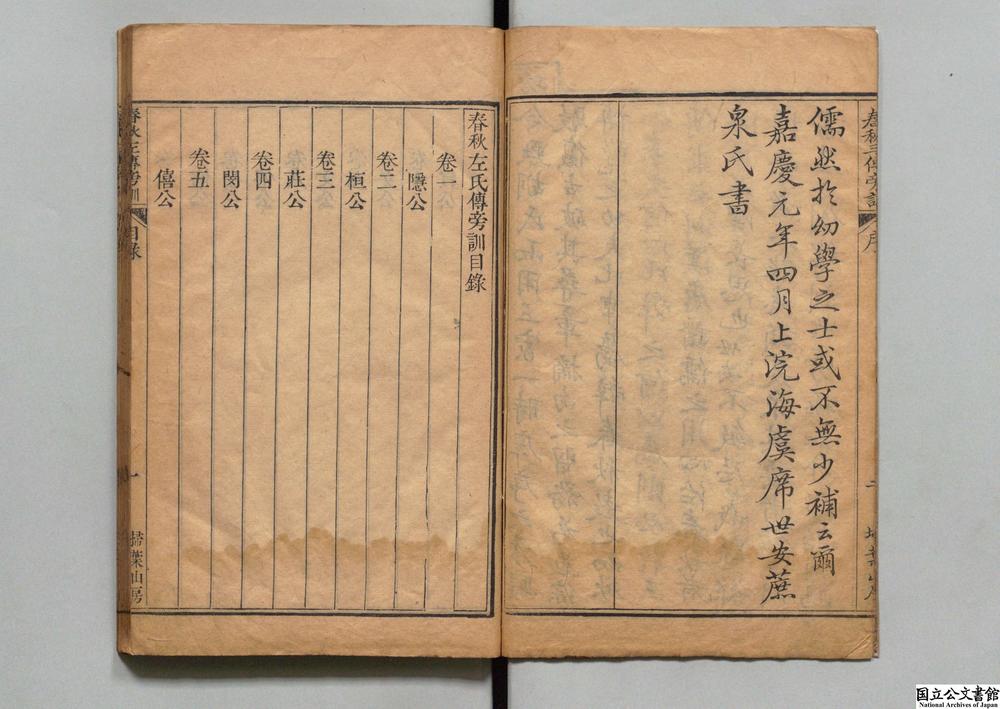 儒然於幼學之士或不無少補云爾
嘉慶元年四月上浣海虞席世安蔗
泉氏書
序
春秋左氏傳旁訓目錄
卷一
隱公
卷二
桓公
卷三
莊公
卷四
閔公
卷五
僖公
春秋左傳旁訓
目錄
一
掃葉山房
国立公文書館
National Archives of Japan